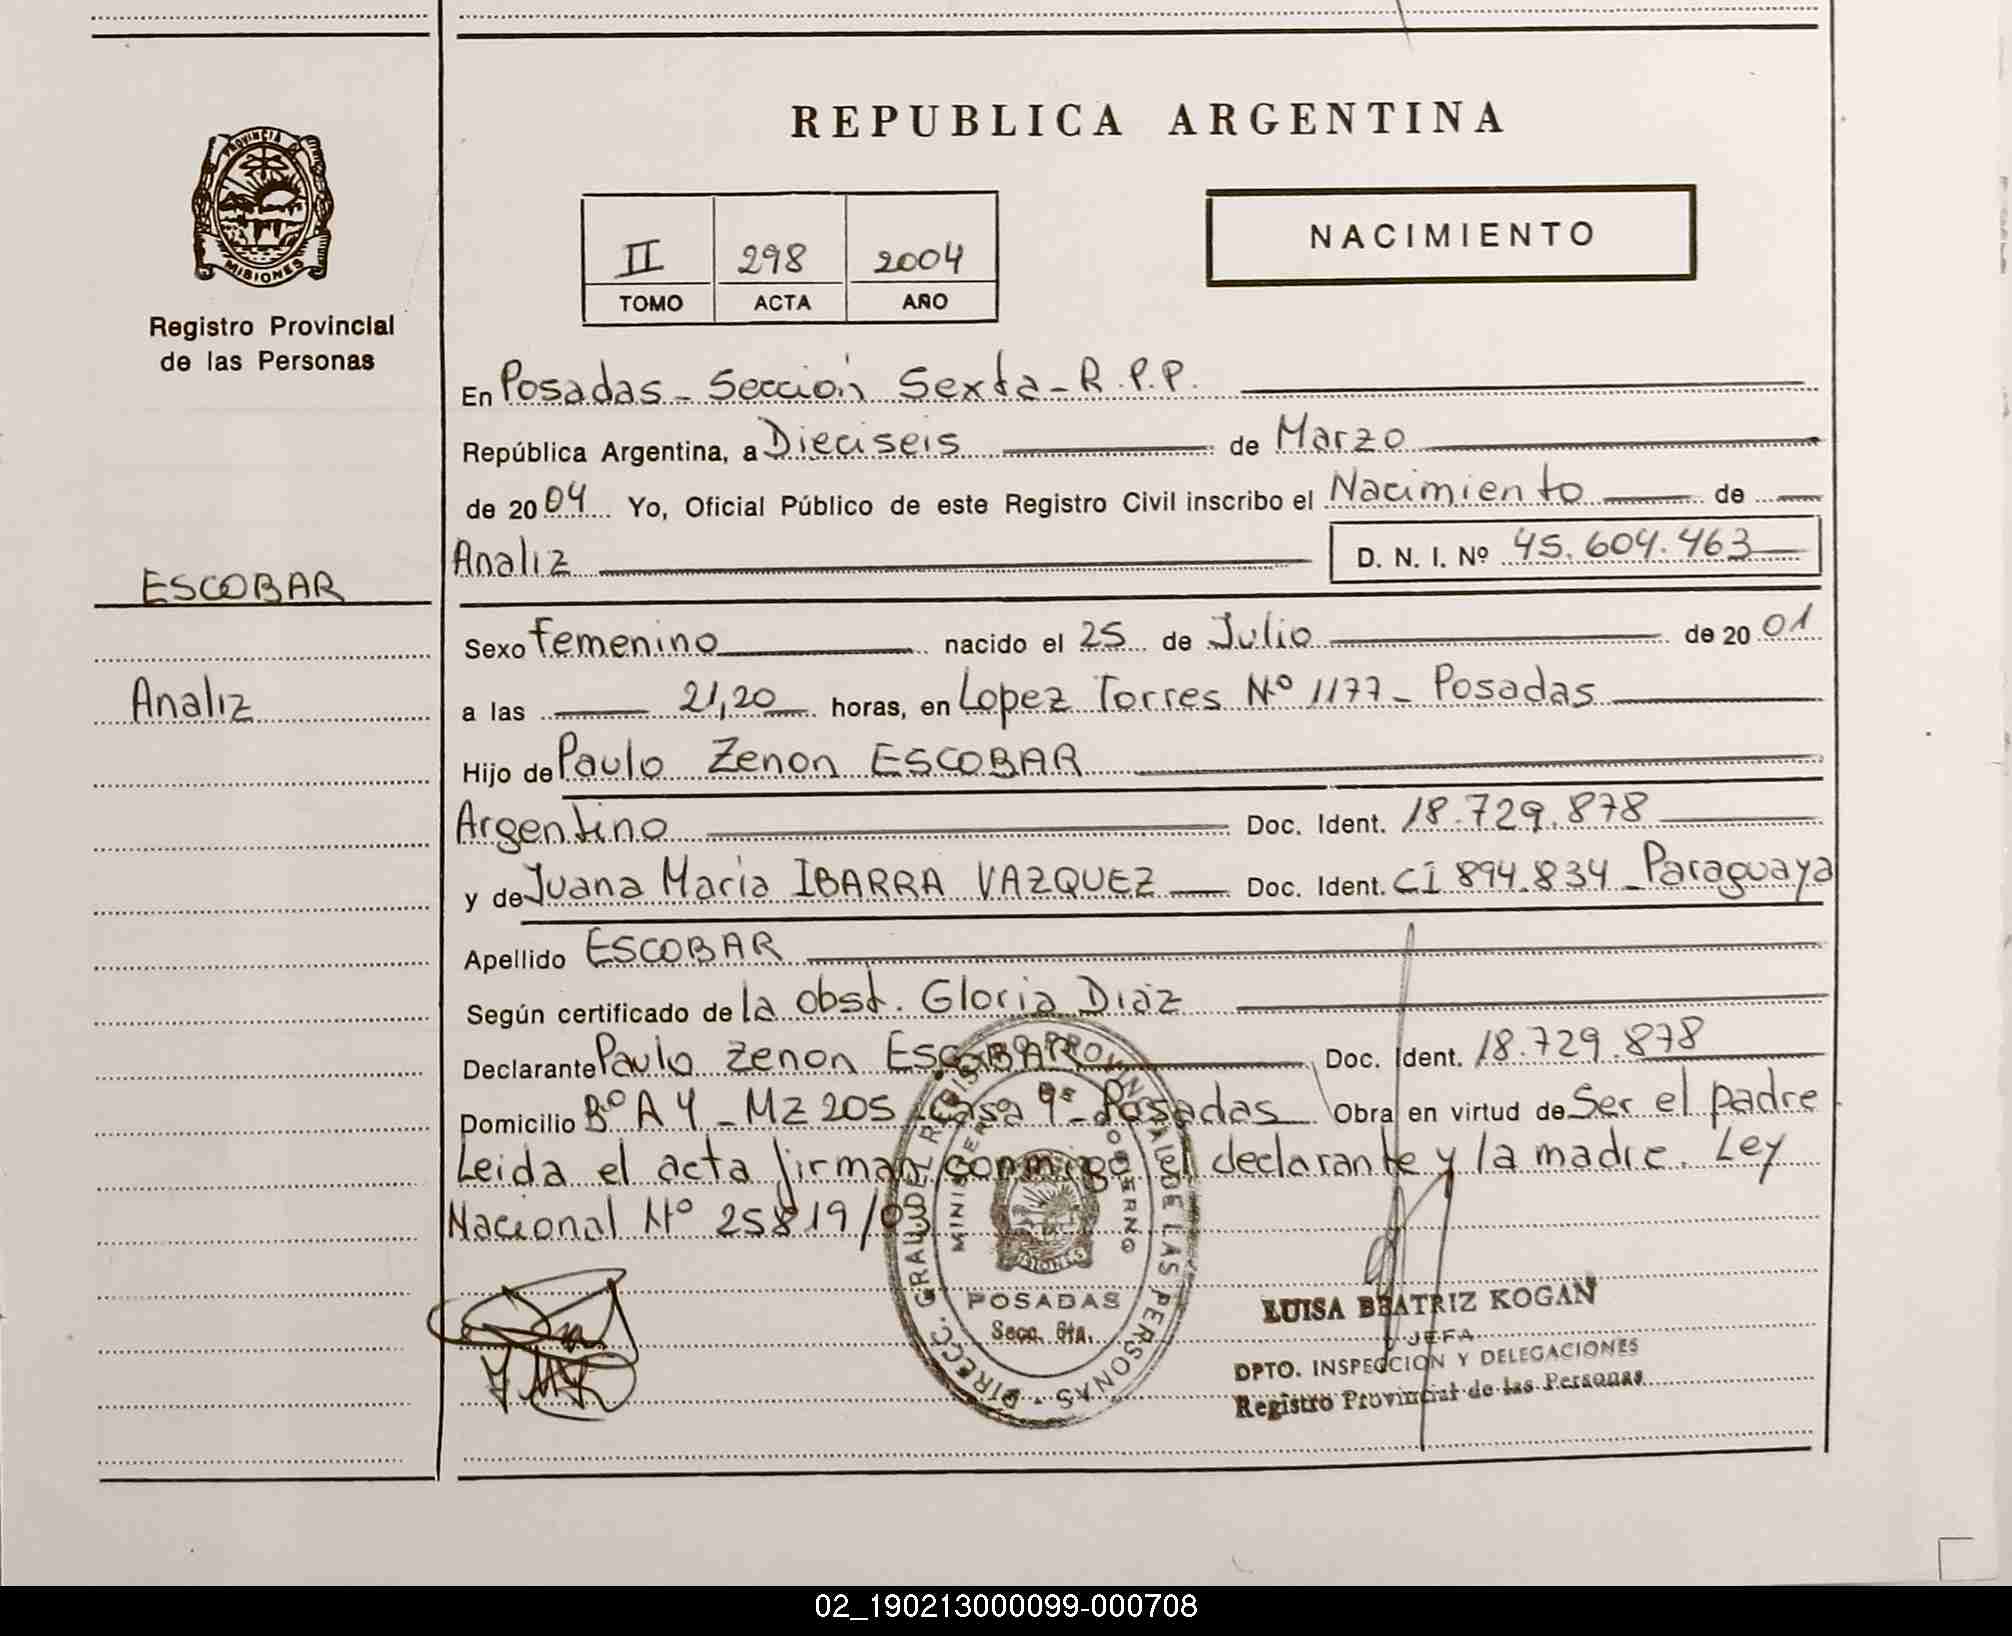 REPUBLICA ARGENTINA
PROVINCIA DE
MISIONES
Registro Provincial
de las Personas
II 298 2004
TOMO ACTA AÑO
NACIMIENTO
En Posadas - Sección Sexta - R.P.P.
República Argentina, a Dieciseis de Marzo
de 2004 Yo, Oficial Público de este Registro Civil inscribo el Nacimiento de
Analiz D. N. I. Nº 45.604.463
ESCOBAR
Analiz
Sexo Femenino nacido el 25 de Julio de 2001
a las 21,20 horas, en Lopez Torres Nº 1177 - Posadas
Hijo de Paulo Zenon ESCOBAR
Argentino Doc. Ident. 18.729.878
y de Juana Maria IBARRA VAZQUEZ Doc. Ident. CI 894.834 - Paraguaya
Apellido ESCOBAR
Según certificado de la obst. Gloria Diaz
Declarante Paulo Zenon ESCOBAR Doc. Ident. 18.729.878
Domicilio Bº A 4 - MZ 205 - Casa 9 - Posadas Obra en virtud de Ser el padre
Leida el acta firman conmigo el declarante y la madre. Ley
Nacional Nº 25819/03
DIRECC. GRAL. DEL REGISTRO PROVINCIAL DE LAS PERSONAS
MINISTERIO DE GOBIERNO
MISIONES
POSADAS
Secc. 6ta.
LUISA BEATRIZ KOGAN
JEFA
DPTO. INSPECCION Y DELEGACIONES
Registro Provincial de las Personas
02_190213000099-000708